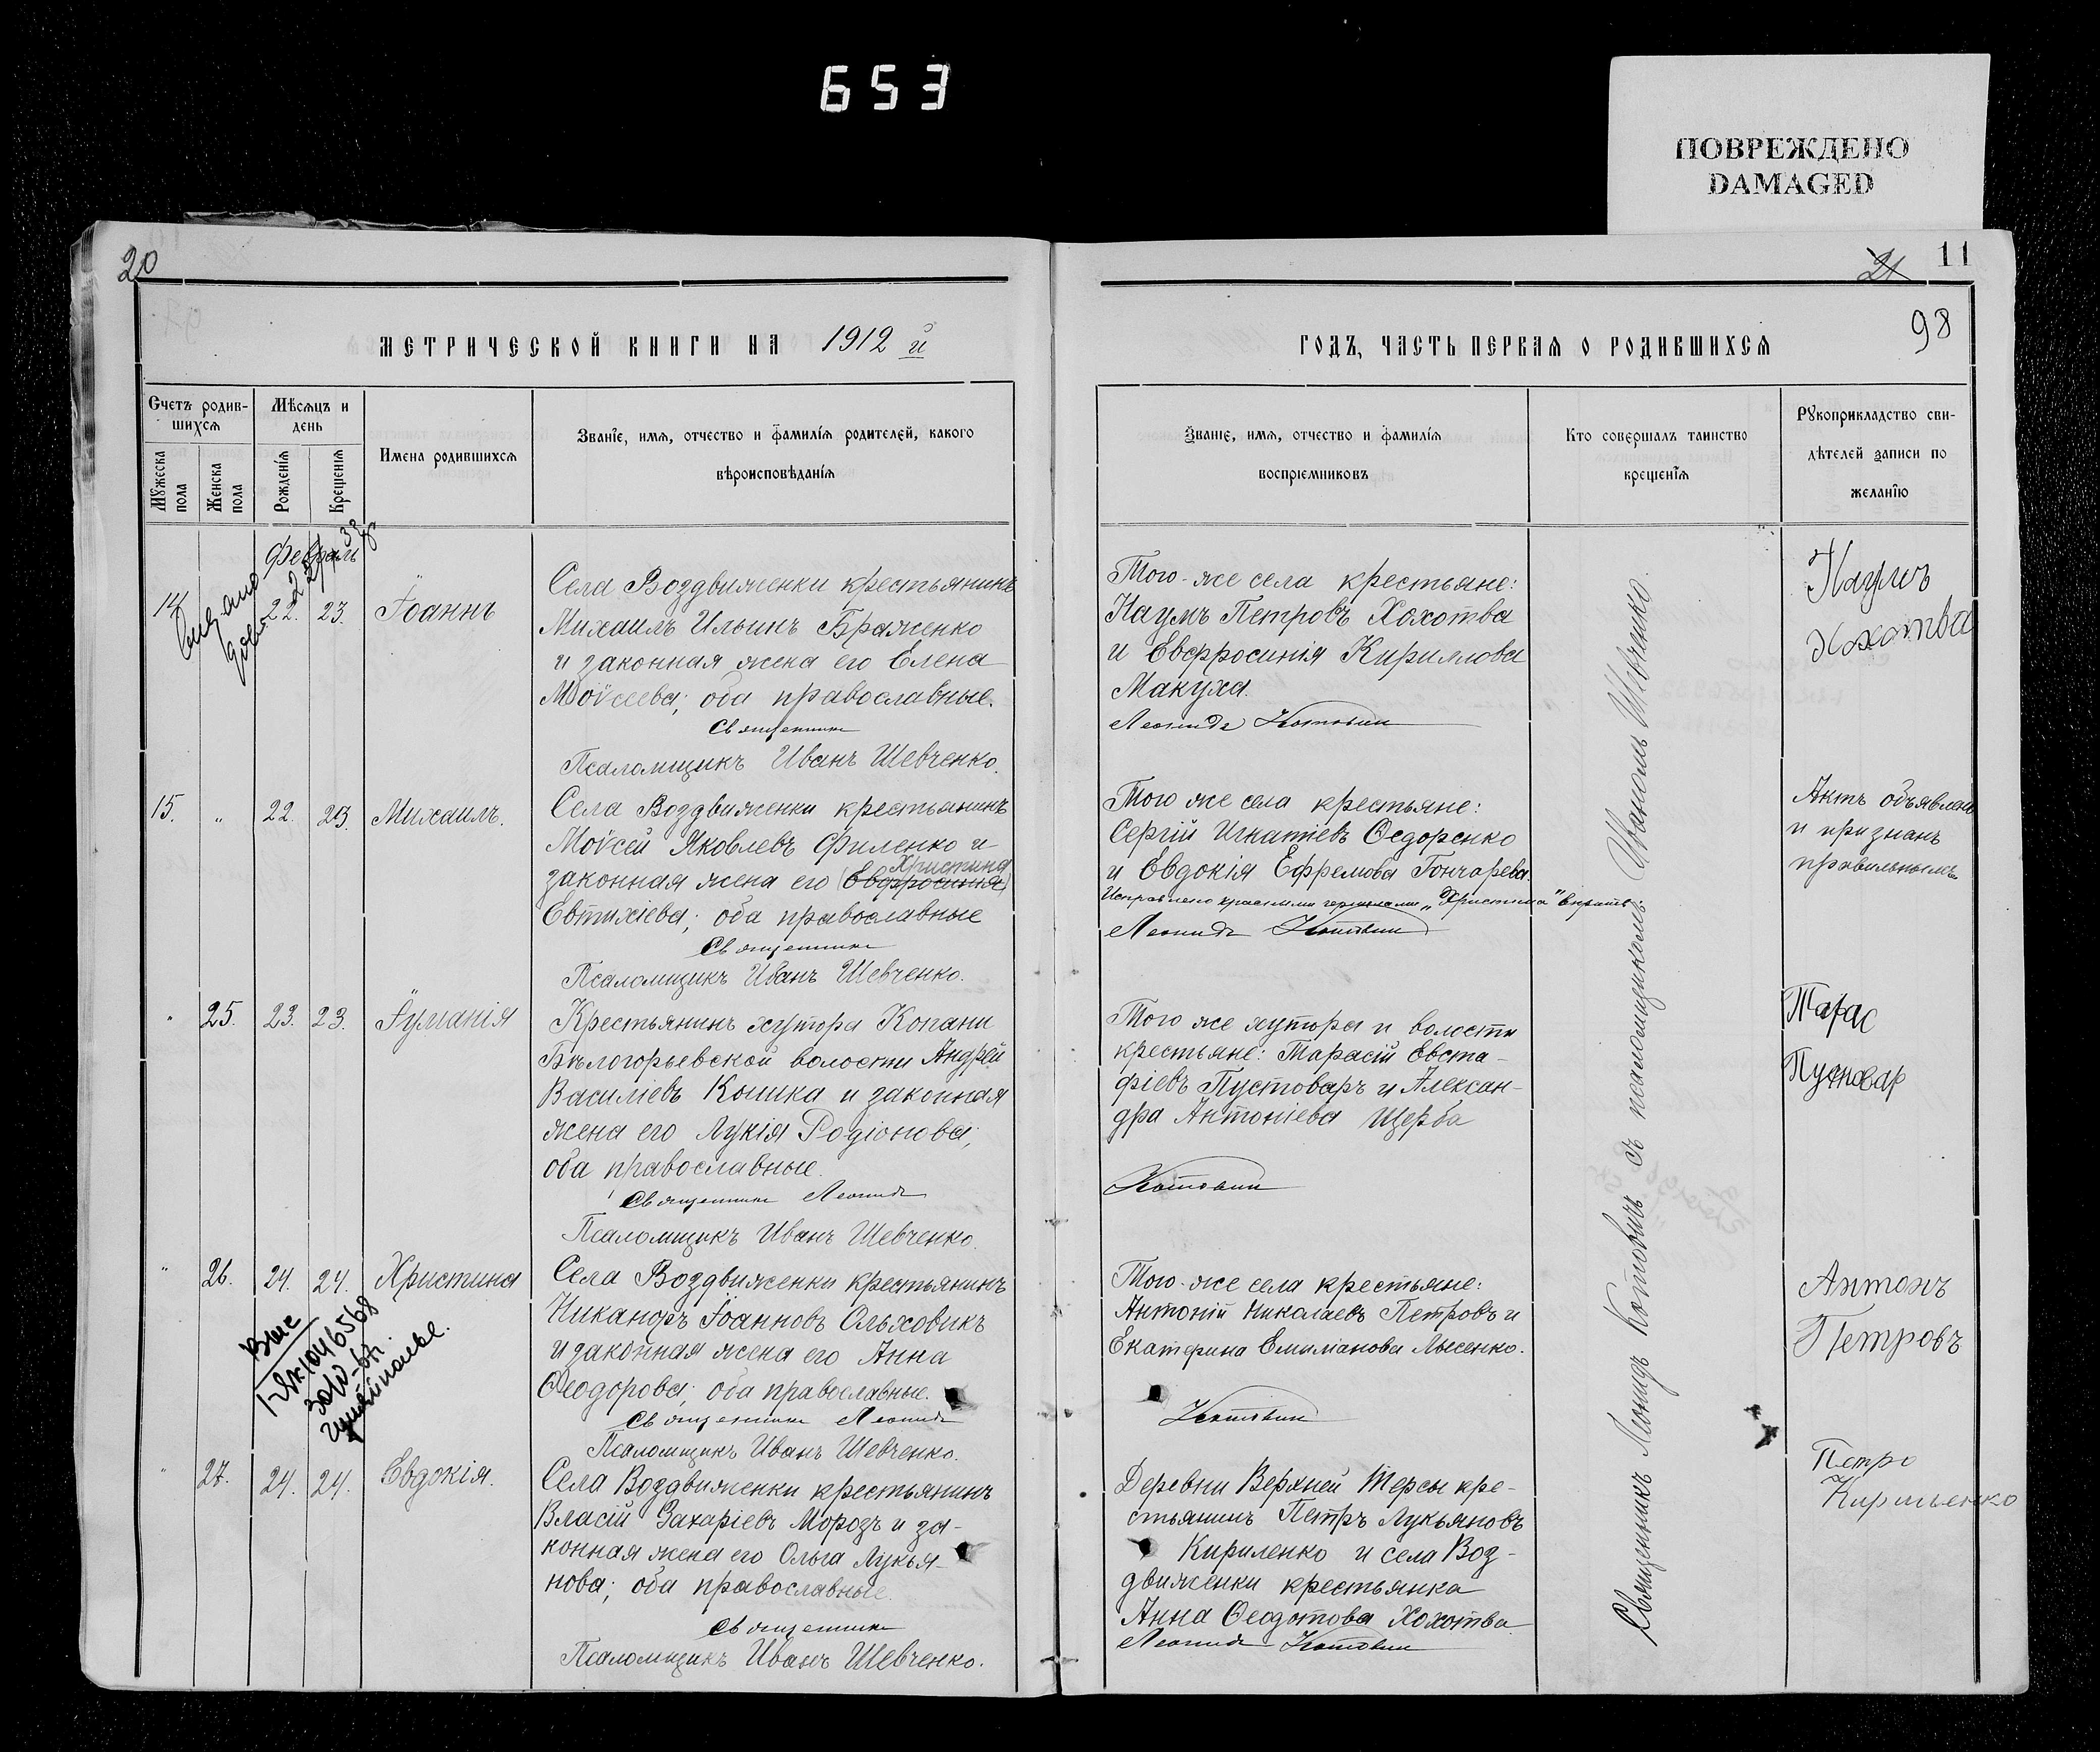 653
ПОВРЕЖДЕНО
DAMAGED
20
МЕТРИЧЕСКОЙ КНИГИ НА 1912 й
Счетъ родив-
шихся
Мѣсяцъ и
день
Мужеска
пола
Женска
пола
Рожденія
Крещенія
Имена родившихся
Званіе, имя, отчество и фамилія родителей, какого
вѣроисповѣданія
Февраль
14 22. 23. Іоаннъ
Села Воздвиженки крестьянинъ
Михаилъ Ильинъ Браженко
и законная жена его Елена
Моѵсеева; оба православные.
Священникъ
Псаломщикъ Иванъ Шевченко.
15. " 22. 23. Михаилъ.
Села Воздвиженки крестьянинъ
Моѵсей Яковлевъ Филенко и
Христина
законная жена его (Евфросинія)
Евтихіева; оба православные
Священникъ
Псаломщикъ Иванъ Шевченко.
" 25. 23. 23. Іуліанія
Крестьянинъ хутора Копани
Бѣлогорьевской волости Андрей
Василіевъ Кошка и законная
жена его Лукія Родіонова;
оба православные.
Священникъ Леонидъ
Псаломщикъ Иванъ Шевченко.
" 26. 24. 24. Христина
Села Воздвиженки крестьянинъ
Никаноръ Іоанновъ Ольховикъ
и законная жена его Анна
Ѳеодорова; оба православные.
Священникъ Леонидъ
Псаломщикъ Иванъ Шевченко.
" 27. 24. 24. Евдокія.
Села Воздвиженки крестьянинъ
Власій Захаріевъ Морозъ и за-
конная жена его Ольга Лукья-
нова; оба православные.
Священникъ
Псаломщикъ Иванъ Шевченко.
21 11
98
ГОДЪ, ЧАСТЬ ПЕРВАЯ О РОДИВШИХСЯ
Званіе, имя, отчество и фамилія
воспріемниковъ
Кто совершалъ таинство
крещенія
Рукоприкладство сви-
дѣтелей записи по
желанію
Того-же села крестьяне:
Наумъ Петровъ Хохотва
и Евфросинія Кириллова
Макуха.
Леонидъ Котовичъ
Наумъ
Хохотва
Того же села крестьяне:
Сергій Игнатіевъ Ѳедоренко
и Евдокія Ефремова Гончарева.
Исправлено красными чернилами „Христина" вѣрить
Леонидъ Котовичъ
Актъ объявленъ
и признанъ
правильнымъ
Того же хутора и волости
крестьяне: Тарасій Евста-
фіевъ Пустоваръ и Алексан-
дра Антоніева Щерба
Котовичъ
Тарас
Пустовар
Того-же села крестьяне:
Антоній Николаевъ Петровъ и
Екатерина Емиліанова Лысенко.
Котовичъ
Антонъ
Петровъ
Деревни Верхней Терсы кре-
стьянинъ Петръ Лукьяновъ
Кириленко и села Воз-
движенки крестьянка
Анна Ѳеодотова Хохотва
Леонидъ Котовичъ
Петро
Кириленко
Священникъ Леонидъ Котовичъ съ псаломщикомъ Иваномъ Шевченко.